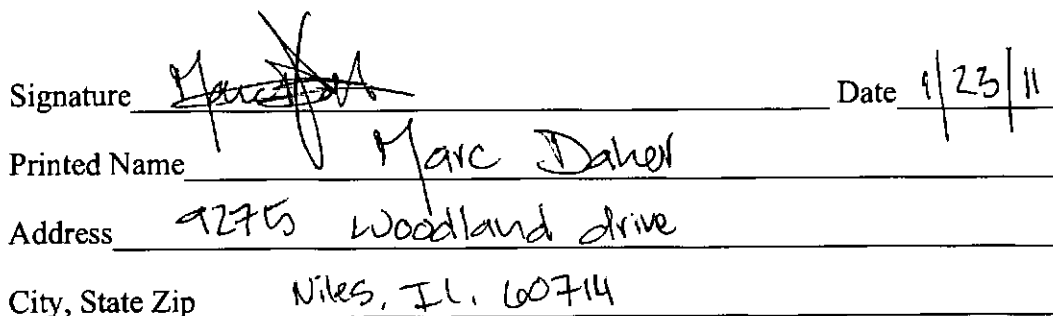 Signature Marc Date 9/23/11
Printed Name Marc Daher
Address 9275 Woodland drive
City, State Zip Niles, IL. 60714